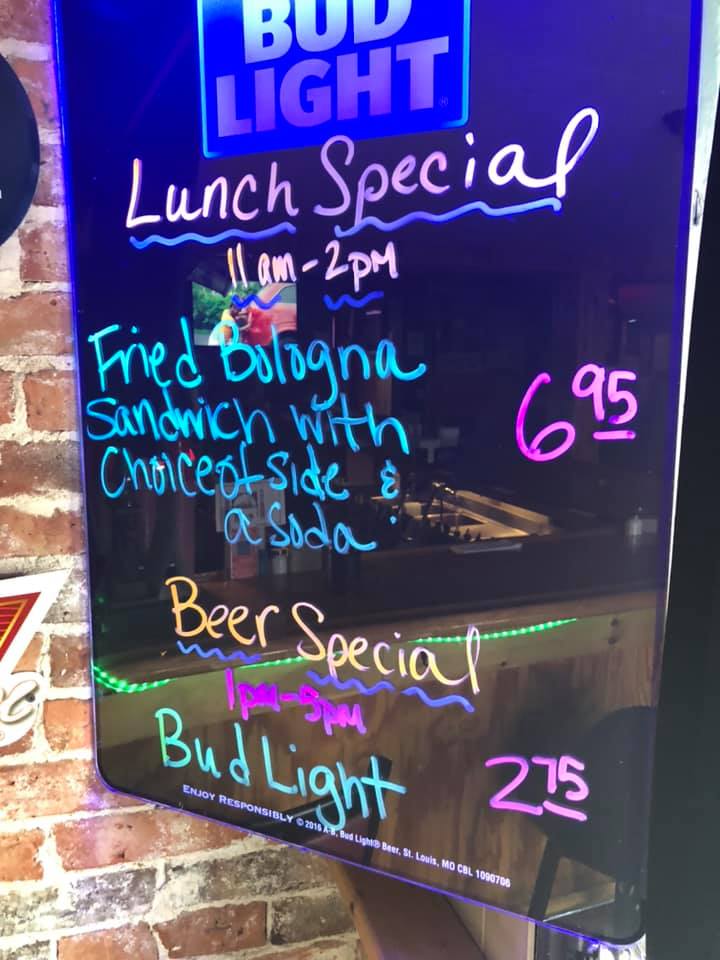 BUD
LIGHT
Lunch Special
11am-2pm
Fried Bologna
Sandwich with
Choice of side &
a soda
6.95
Beer Special
1pm-5pm
Bud Light
2.75
ENJOY RESPONSIBLY © 2016 A-B, Bud Light® Beer, St. Louis, MO CBL 1090706